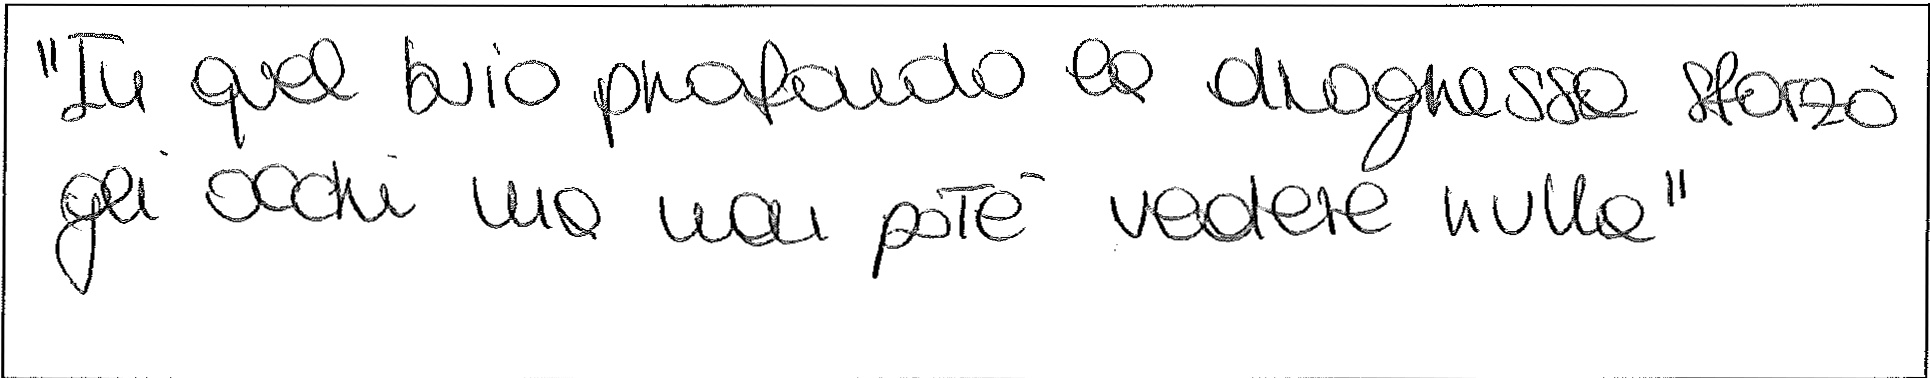 "In quel buio profondo la draghessa sforzò
gli occhi ma non potè vedere nulla"